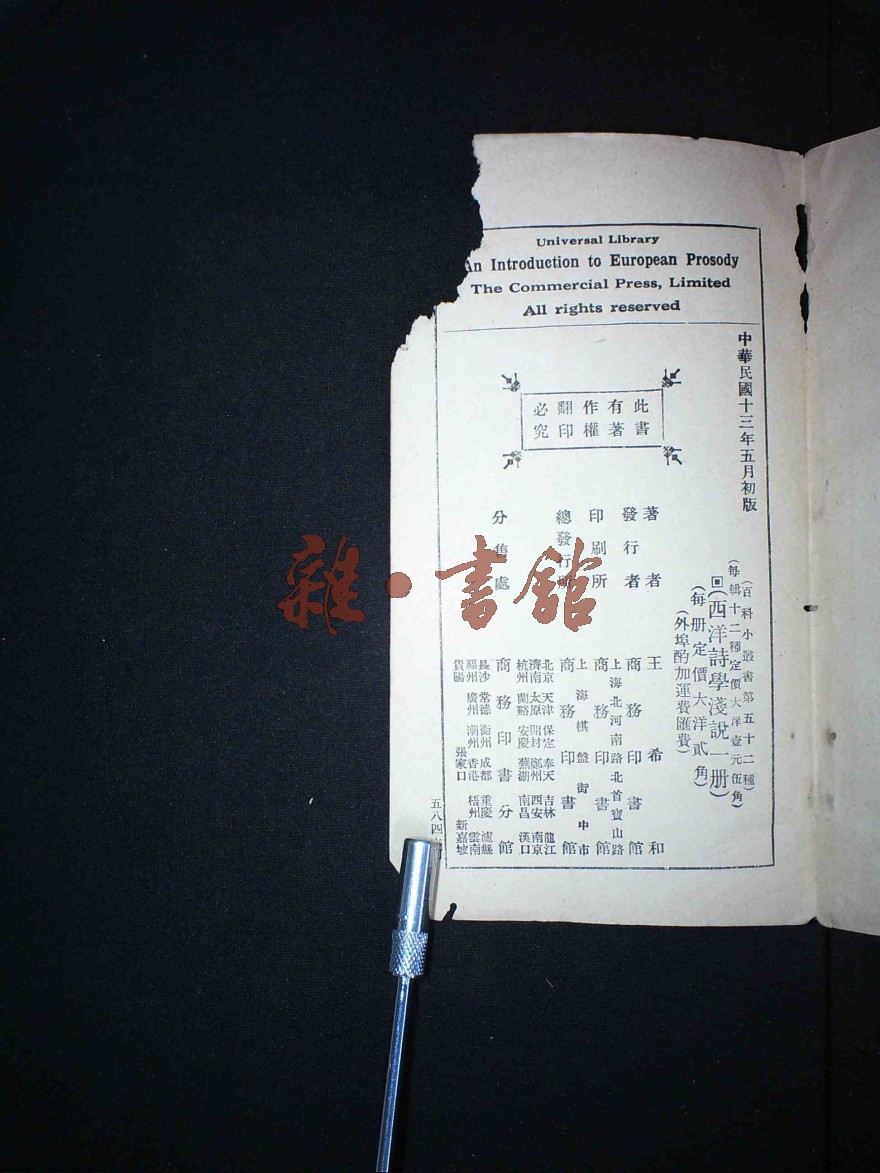 Universal Library
An Introduction to European Prosody
The Commercial Press, Limited
All rights reserved
中華民國十三年五月初版
此書有著作權翻印必究
(百科小叢書第五十二種)
(每輯十二種定價大洋壹元伍角)
(西洋詩學淺說一册)
(每册定價大洋貳角)
(外埠酌加運費匯費)
著者 王希和
發行者 商務印書館
上海北河南路北首寶山路
印刷所 商務印書館
上海棋盤街中市
總發行所 商務印書館
分售處 商務印書分館
北京 天津 保定 奉天 吉林 龍江
濟南 太原 開封 鄭州 西安 南京
杭州 蘭谿 安慶 蕪湖 南昌 漢口
長沙 常德 衡州 成都 重慶 瀘縣
福州 廣州 潮州 香港 梧州 雲南
貴陽 張家口 新嘉坡
五八四
雜·書館